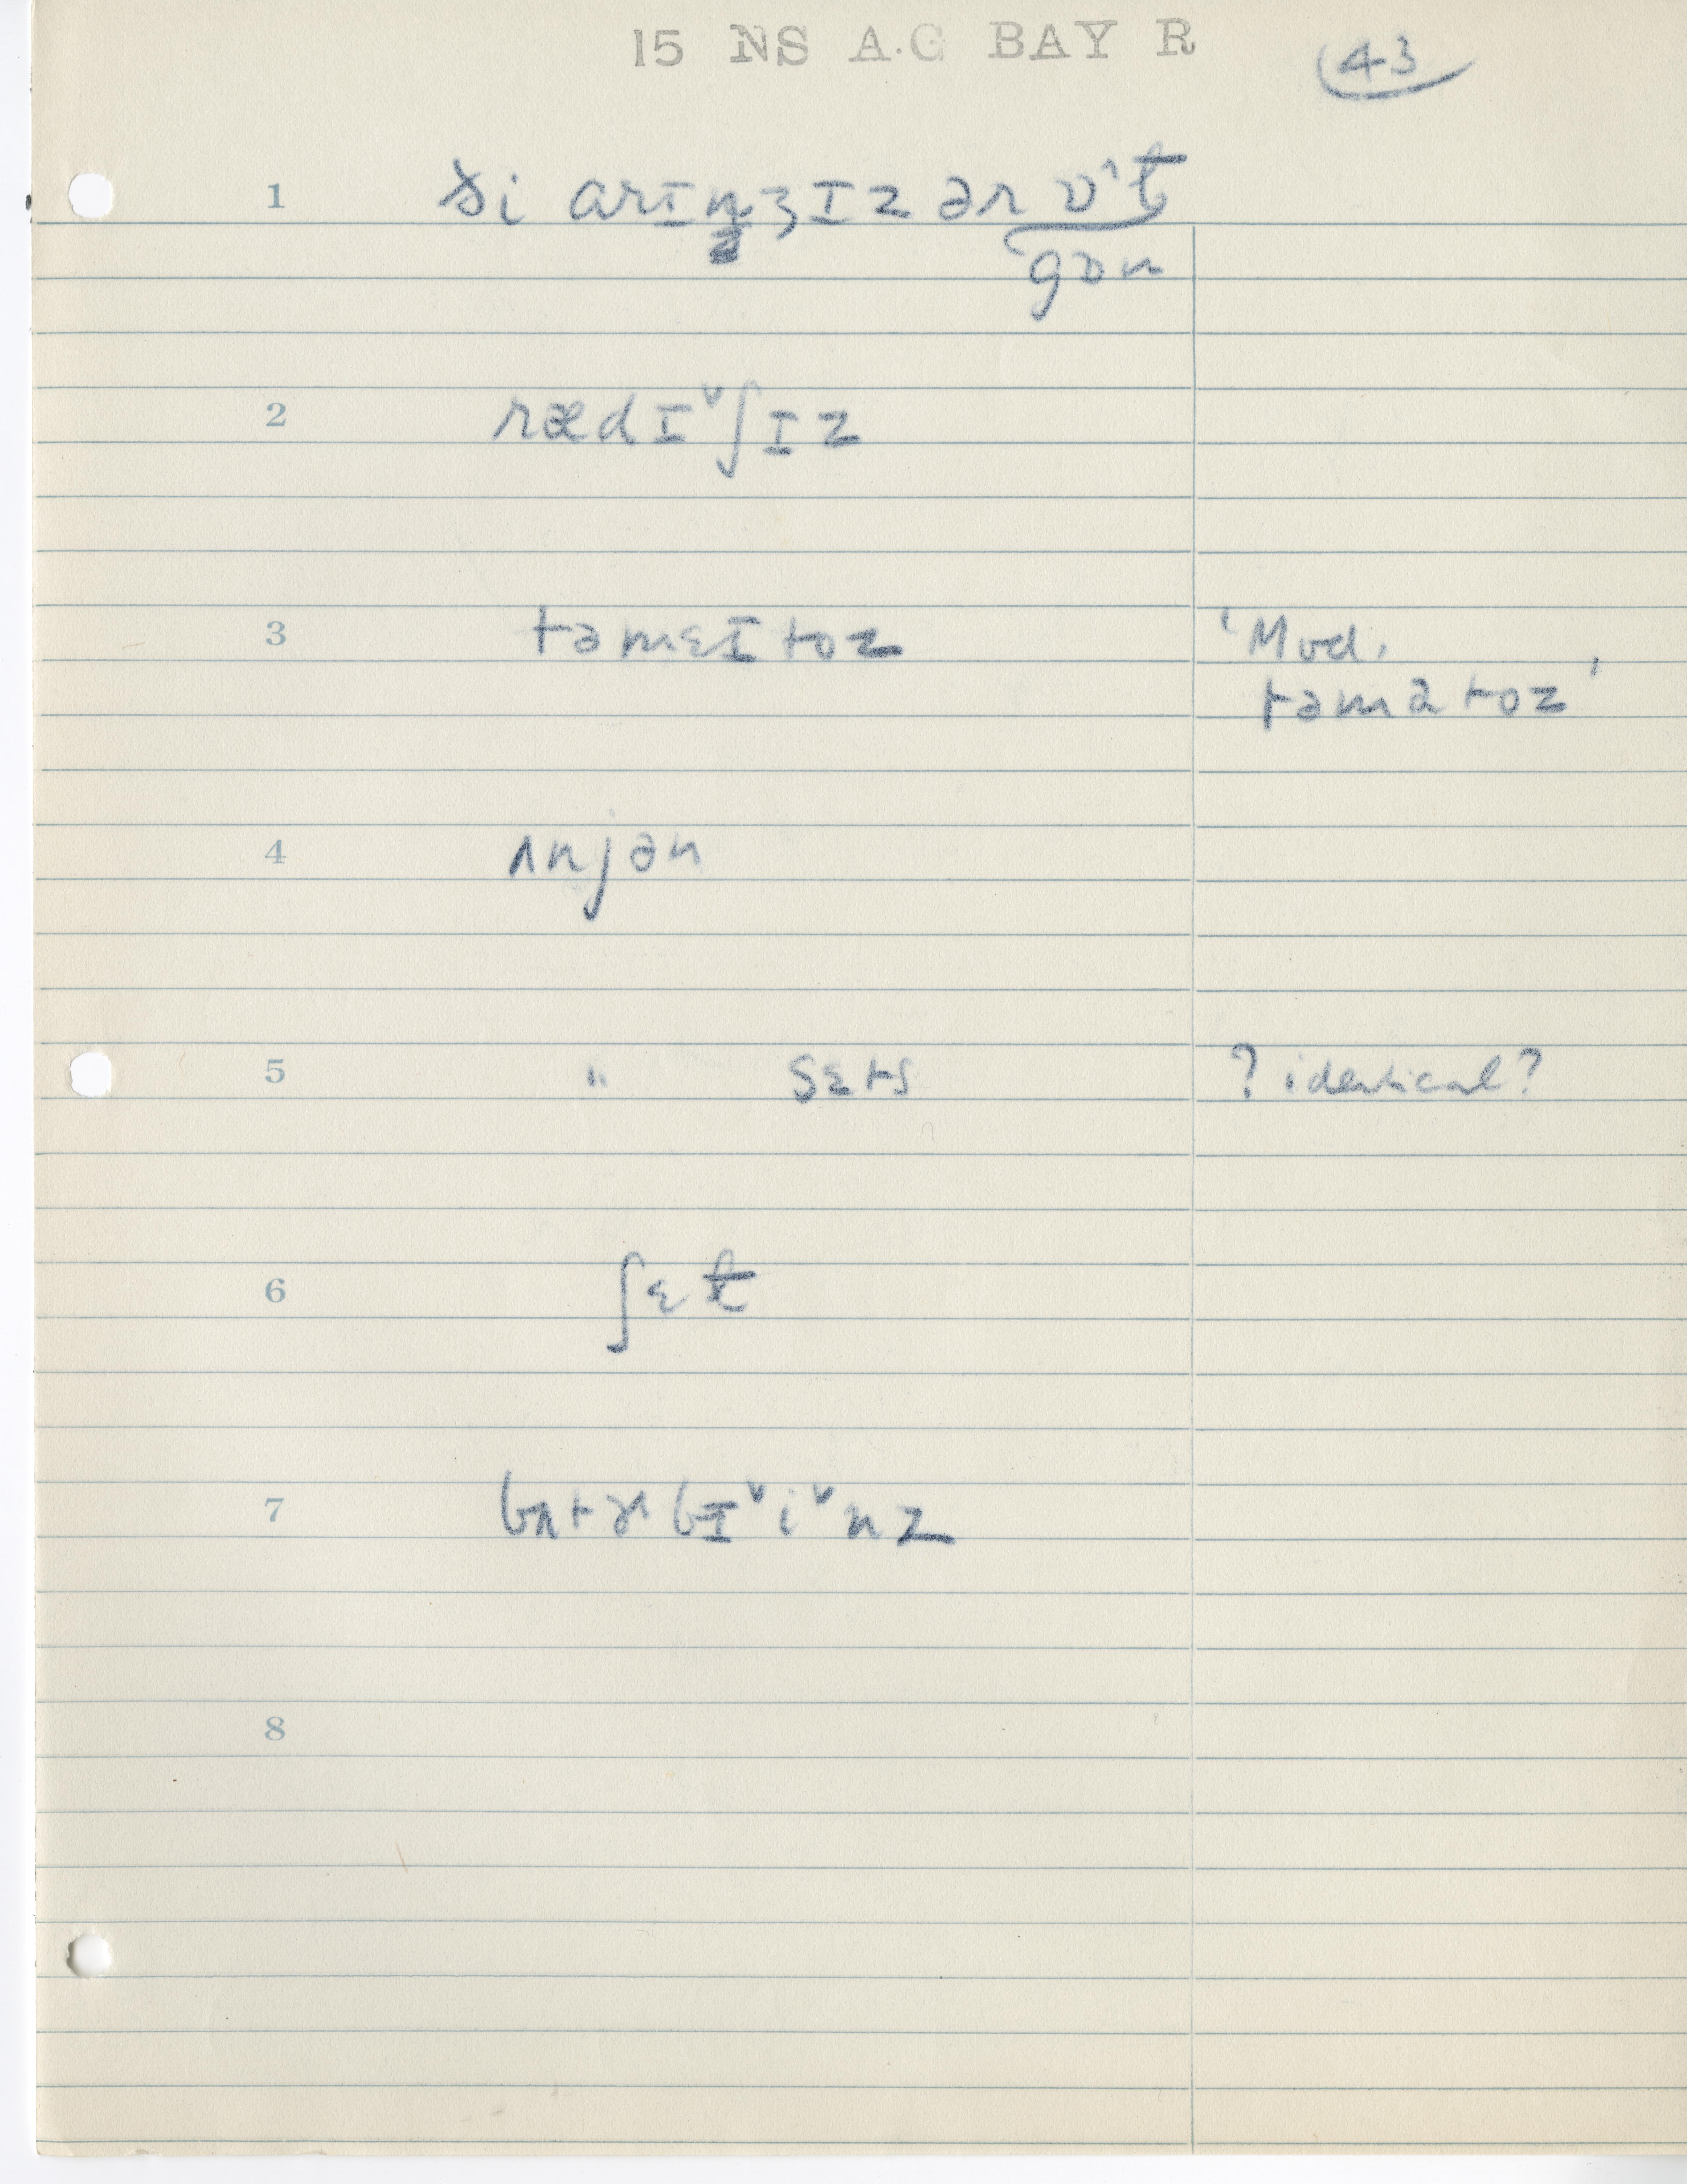 15 NS A.G BAY R
43
1 ði arɪnʒɪz ər ɒ˄t
gɒn
2 rædɪ˅ʃɪz
3 təmɛɪtoz 'Mod.
təmatoz'
4 ʌnjən
5 " sɛts ? identical?
6 ʃɛt
7 bʌtər bɪ˅i˅nz
8